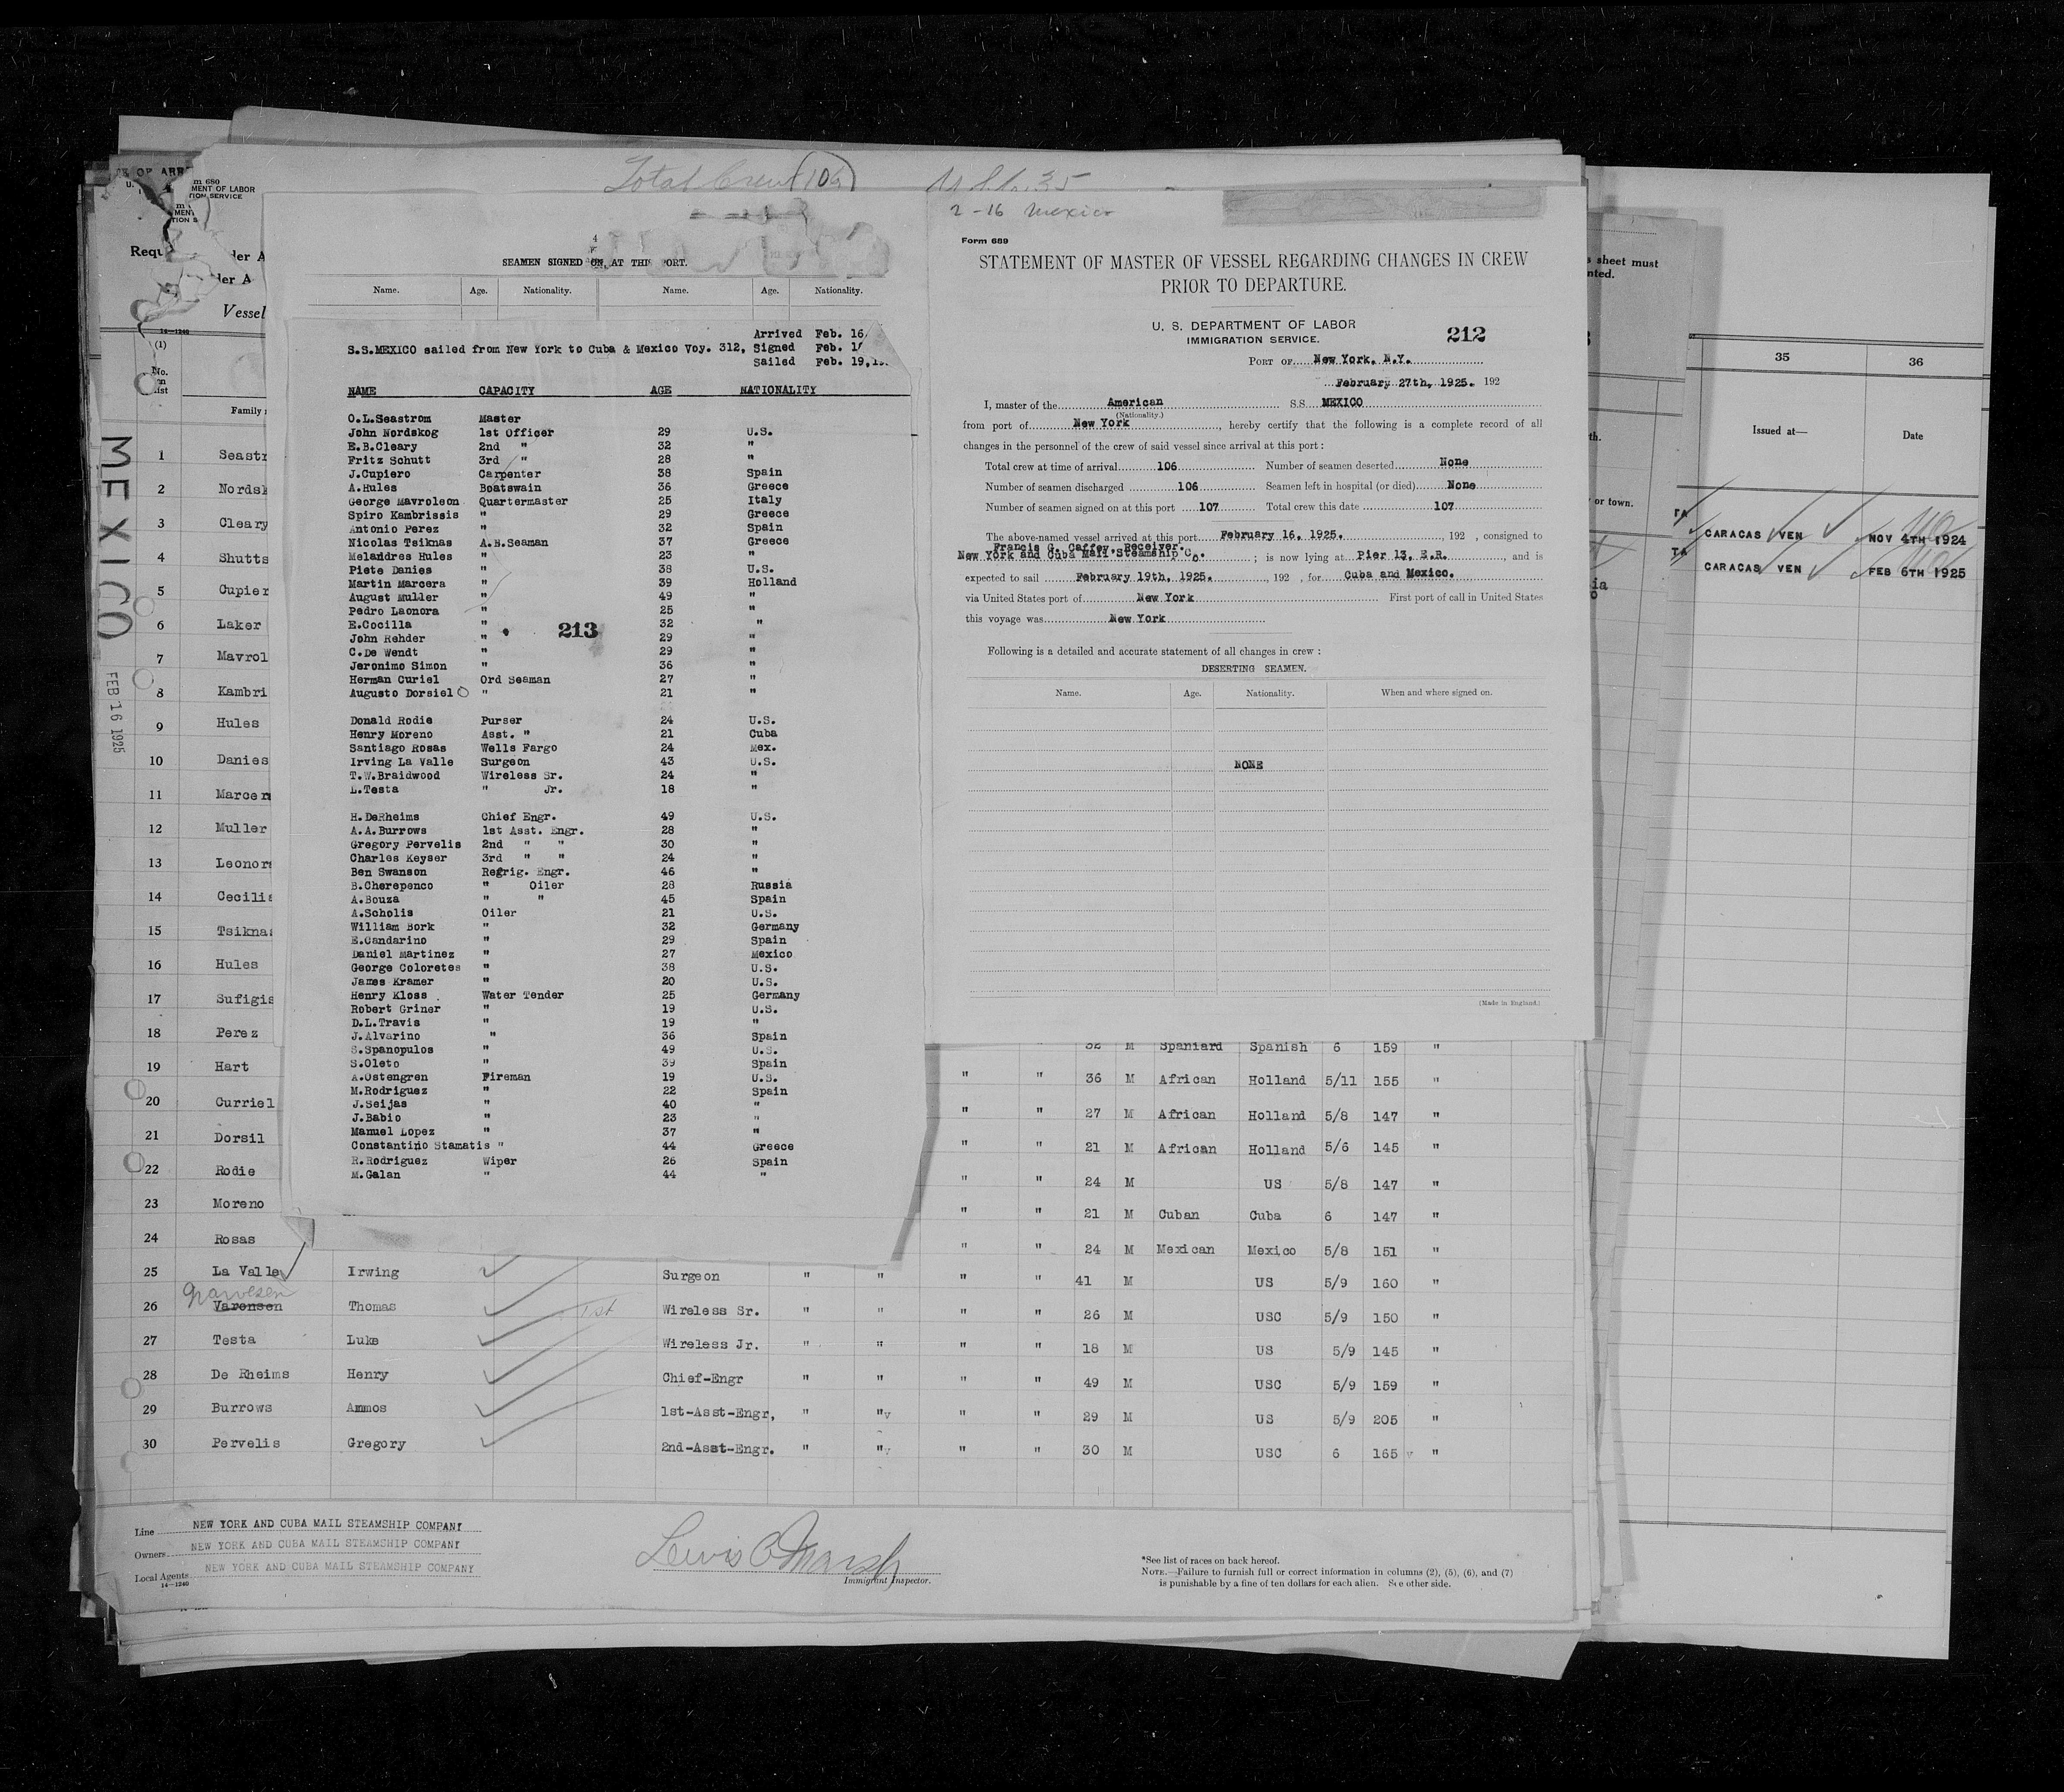 Total Crew (106)
2-16 Mexico
SEAMEN SIGNED ON, AT THIS PORT.
Name. Age. Nationality. Name. Age. Nationality.
Arrived Feb. 16
S.S.MEXICO sailed from New York to Cuba & Mexico Voy. 312, Signed Feb.
Sailed Feb. 19,
NAME CAPACITY AGE NATIONALITY
O.L.Seastrom Master
John Nordskog 1st Officer 29 U.S.
E.B.Cleary 2nd " 32 "
Fritz Schutt 3rd " 28 "
J.Cupiero Carpenter 38 Spain
A.Hules Boatswain 36 Greece
George Mavroleon Quartermaster 25 Italy
Spiro Kambrissis " 29 Greece
Antonio Perez " 32 Spain
Nicolas Tsiknas A.B.Seaman 37 Greece
Melandres Hules " 23 "
Piete Danies " 38 U.S.
Martin Marcera " 39 Holland
August Muller " 49 "
Pedro Laonora " 25 "
E.Cocilla " 32 "
213
John Rehder " 29 "
C.De Wendt " 29 "
Jeronimo Simon " 36 "
Herman Curiel Ord Seaman 27 "
Augusto Dorsiel " 21 "
Donald Rodie Purser 24 U.S.
Henry Moreno Asst. " 21 Cuba
Santiago Rosas Wells Fargo 24 Mex.
Irving La Valle Surgeon 43 U.S.
T.W.Braidwood Wireless Sr. 24 "
L.Testa " Jr. 18 "
H.DeRheims Chief Engr. 49 U.S.
A.A.Burrows 1st Asst. Engr. 28 "
Gregory Pervelis 2nd " " 30 "
Charles Keyser 3rd " " 24 "
Ben Swanson Refrig. Engr. 46 "
B.Cherepenco " Oiler 28 Russia
A.Bouza " " 45 Spain
A.Scholis Oiler 21 U.S.
William Bork " 32 Germany
E.Candarino " 29 Spain
Daniel Martinez " 27 Mexico
George Coloretes " 38 U.S.
James Kramer " 20 U.S.
Henry Kloss Water Tender 25 Germany
Robert Griner " 19 U.S.
D.L.Travis " 19 "
J.Alvarino " 36 Spain
S.Spanopulos " 49 U.S.
S.Oleto " 39 Spain
A.Ostengren Fireman 19 U.S.
M.Rodriguez " 22 Spain
J.Seijas " 40 "
J.Babio " 23 "
Manuel Lopez " 37 "
Constantino Stamatis " 44 Greece
R.Rodriguez Wiper 26 Spain
M.Galan " 44 "
Form 689
STATEMENT OF MASTER OF VESSEL REGARDING CHANGES IN CREW
PRIOR TO DEPARTURE.
U. S. DEPARTMENT OF LABOR
IMMIGRATION SERVICE.
212
PORT OF New York, N.Y.
February 27th, 1925. 192
I, master of the American S.S. MEXICO
(Nationality.)
from port of New York, hereby certify that the following is a complete record of all
changes in the personnel of the crew of said vessel since arrival at this port:
Total crew at time of arrival 106 Number of seamen deserted None
Number of seamen discharged 106 Seamen left in hospital (or died) None
Number of seamen signed on at this port 107 Total crew this date 107
The above-named vessel arrived at this port February 16, 1925. , 192 , consigned to
Francis G. Caffey, Receiver.
New York and Cuba Mail Steamship Co. ; is now lying at Pier 13, E.R. , and is
expected to sail February 19th, 1925. , 192 , for Cuba and Mexico.
via United States port of New York First port of call in United States
this voyage was New York
Following is a detailed and accurate statement of all changes in crew :
DESERTING SEAMEN.
Name. Age. Nationality. When and where signed on.
NONE
(Made in England.)
sheet must
35 36
Issued at— Date
or town.
CARACAS VEN NOV 4TH 1924
CARACAS VEN FEB 6TH 1925
MENT OF LABOR
Vessel
14—1240
(1)
No.
on
list
Family
MEXICO
FEB 16 1925
1 Seastr
2 Nordsk
3 Cleary
4 Shutts
5 Cupier
6 Laker
7 Mavrol
8 Kambri
9 Hules
10 Danies
11 Marcen
12 Muller
13 Leonora
14 Cecilia
15 Tsiknas
16 Hules
17 Sufigis
18 Perez 32 M Spaniard Spanish 6 159 "
19 Hart " " 36 M African Holland 5/11 155 "
20 Curriel " " 27 M African Holland 5/8 147 "
21 Dorsil " " 21 M African Holland 5/6 145 "
22 Rodie " " 24 M US 5/8 147 "
23 Moreno " " 21 M Cuban Cuba 6 147 "
24 Rosas " " 24 M Mexican Mexico 5/8 151 "
25 La Valle Irwing Surgeon " " " " 41 M US 5/9 160 "
26 Varensen Thomas Wireless Sr. " " " " 26 M USC 5/9 150 "
27 Testa Luke Wireless Jr. " " " " 18 M US 5/9 145 "
28 De Rheims Henry Chief-Engr " " " " 49 M USC 5/9 159 "
29 Burrows Ammos 1st-Asst-Engr, " " " " 29 M US 5/9 205 "
30 Pervelis Gregory 2nd-Asst-Engr. " " " " 30 M USC 6 165 "
Line NEW YORK AND CUBA MAIL STEAMSHIP COMPANY
Owners NEW YORK AND CUBA MAIL STEAMSHIP COMPANY
Local Agents NEW YORK AND CUBA MAIL STEAMSHIP COMPANY
14—1240
Lewis C Marsh
Immigrant Inspector.
*See list of races on back hereof.
NOTE.—Failure to furnish full or correct information in columns (2), (5), (6), and (7)
is punishable by a fine of ten dollars for each alien. See other side.